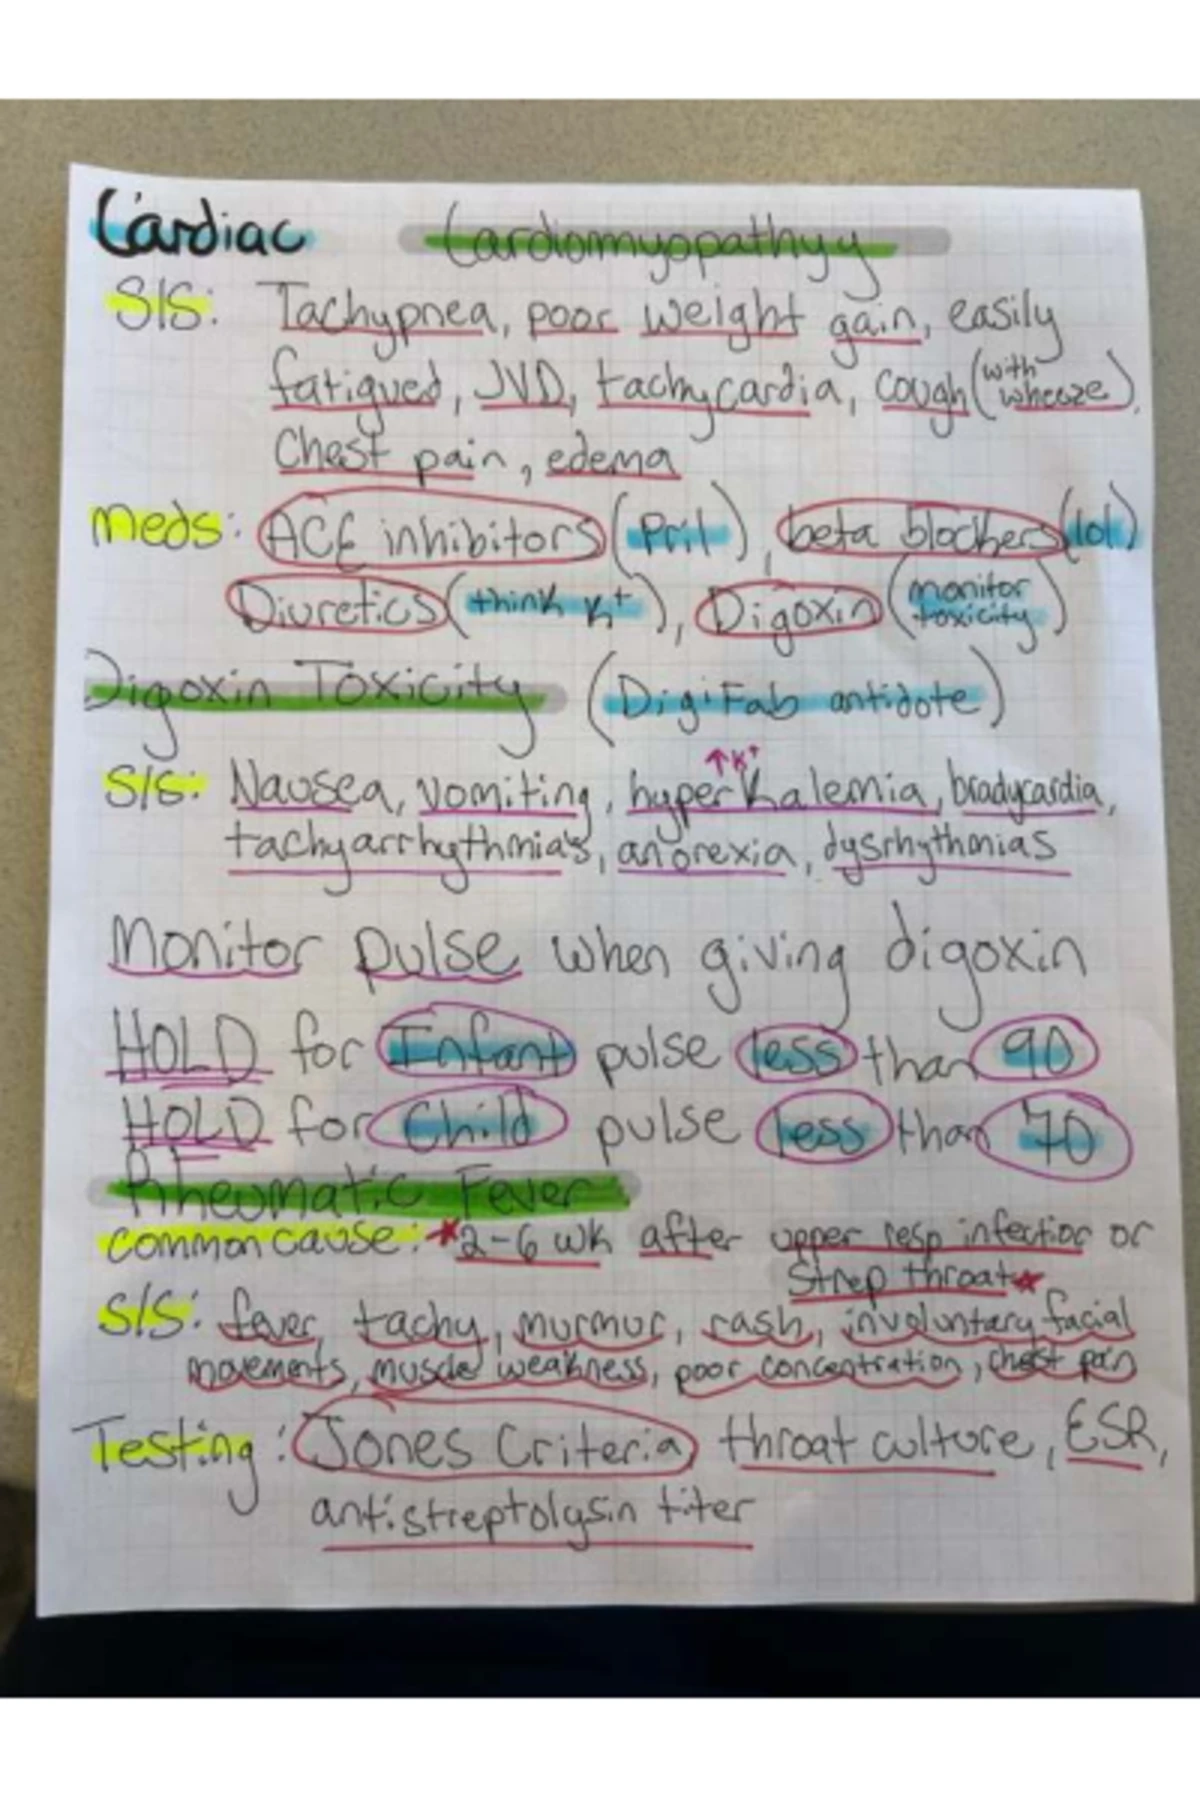 Cardiac Cardiomyopathyy
S/S: Tachypnea, poor weight gain, easily
fatigued, JVD, tachycardia, cough (with wheeze),
Chest pain, edema
Meds: ACE inhibitors (Pril), beta blockers (lol)
Diuretics (think K+), Digoxin (monitor toxicity)
Digoxin Toxicity (DigiFab antidote)
↑K+
S/S: Nausea, vomiting, hyperkalemia, bradycardia,
tachyarrhythmia's, anorexia, dysrhythmias
Monitor pulse when giving digoxin
HOLD for Infant pulse less than 90
HOLD for Child pulse less than 70
Rheumatic Fever
common cause: *2-6 wk after upper resp infection or
Strep throat*
S/S: fever, tachy, murmur, rash, involuntary facial
movements, muscle weakness, poor concentration, chest pain
Testing: Jones Criteria throat culture, ESR,
antistreptolysin titer